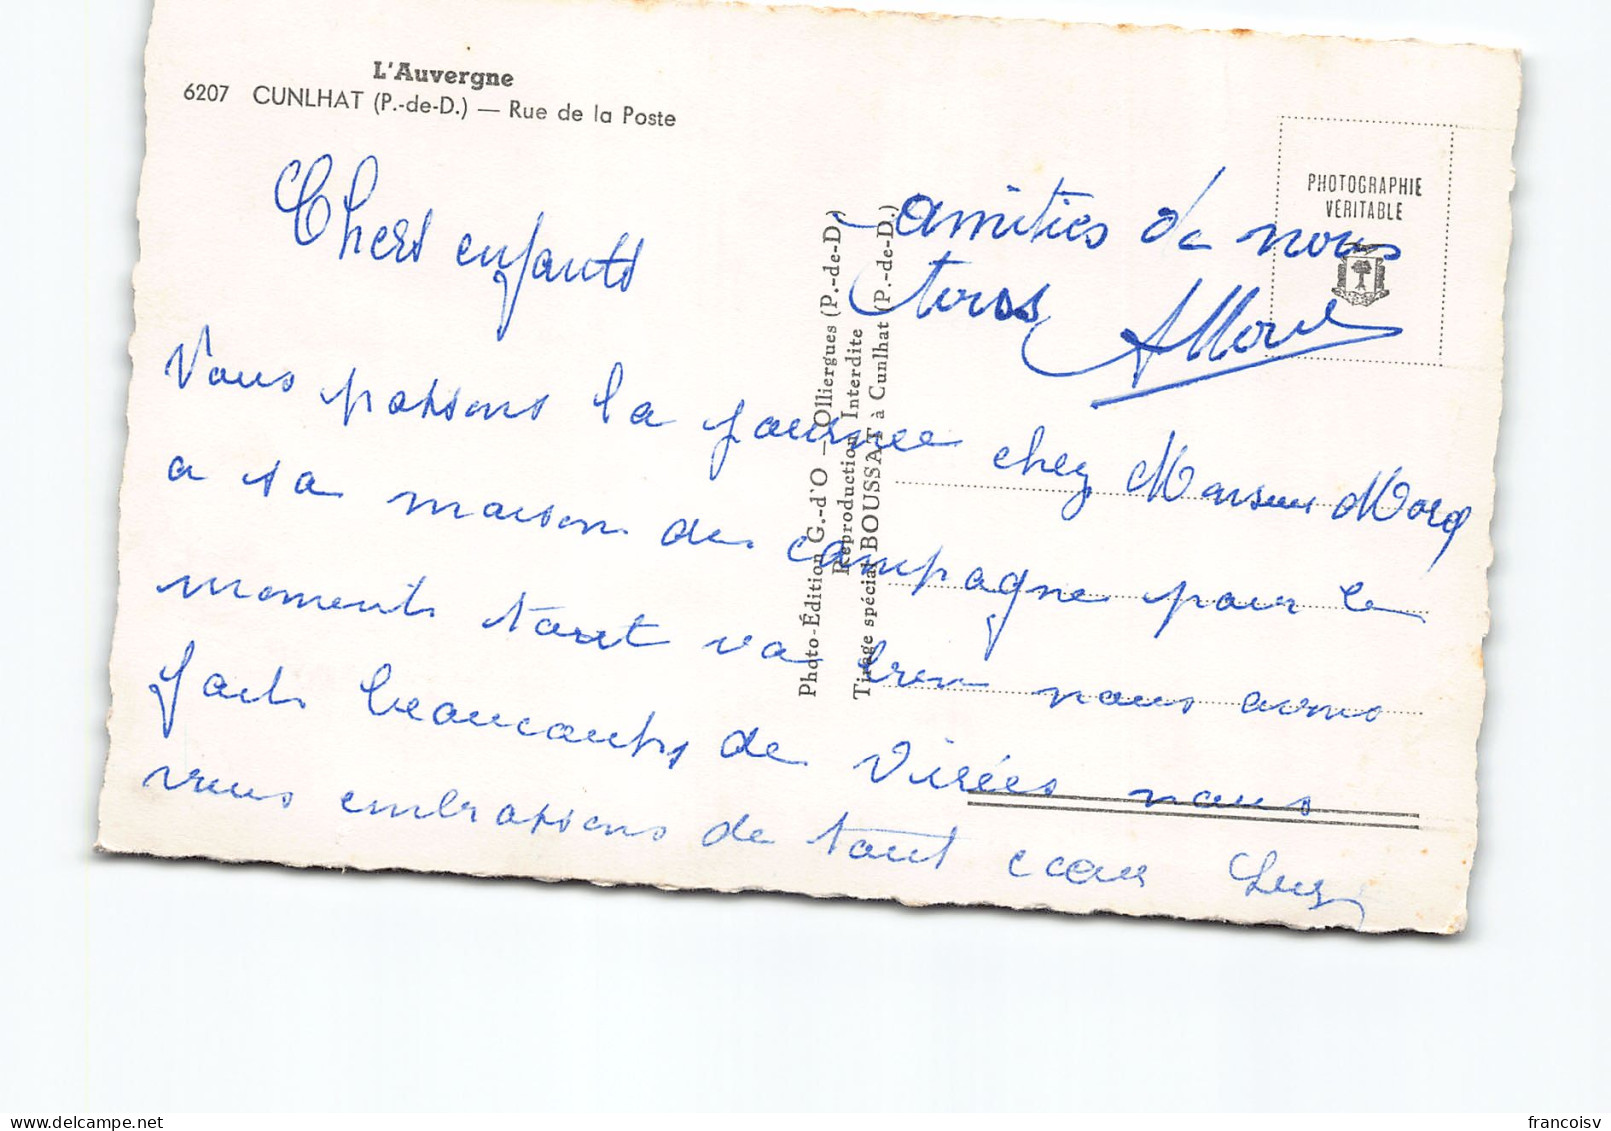 L'Auvergne
6207 CUNLHAT (P.-de-D.) — Rue de la Poste
Chers enfants
Vous passons la journee chez Monsieur
a sa maison de campagne pour le
moments tout va bien nous avons
faits beaucoups de virées nous
vous embrassons de tout cœur
amitiés de nous
tous
PHOTOGRAPHIE
VÉRITABLE
Photo-Édition G.-d'O — Olliergues (P.-de-D.)
Reproduction Interdite
Tirage spécial BOUSSAT à Cunlhat (P.-de-D.)
francoisv